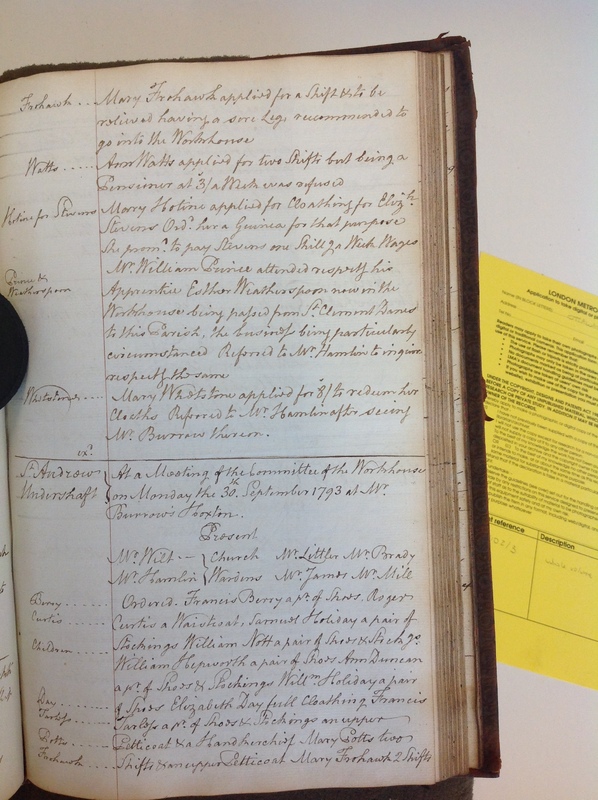 Frohawk .. Mary Frohawk applied for a Shift & to be
relieved having a sore Leg recommended to
go into the Workhouse
Watts ..... Ann Watts applied for two Shifts but being a
Pensioner at 3/ a Week was refused
Hotine for Stevens Mary Hotine applied for Cloathing for Eliz.h
Stevens Ord.d her a Guinea for that purpose
She prom.d to pay Stevens one Shill.g a Week Wages
Prince & Weatherspoon Mr. William Prince attended respect.g his
Apprentice Esther Weatherspoon now in the
Workhouse being passed from St. Clement Danes
to this Parish, the business being particularly
circumstanced Referred to Mr. Hamlin to inquire
respect.g the same
Whetstone .. Mary Whetstone applied for 8/ to redeem her
Cloaths Referred to Mr. Hamlin after seeing
Mr. Burrow thereon.
ex.d
St. Andrew Undershaft } At a Meeting of the Committee of the Workhouse
on Monday the 30.th September 1793 at Mr.
Burrow's Hoxton.
Present
Mr. Wilt .— { Church Mr. Littler Mr. Brady
Mr. Hamlin { Wardens Mr. James Mr. Mill
Berry ...... Ordered Francis Berry a p.r of Shoes. Roger
Curtis ..... Curtis a Waistcoat, Samuel Holiday a pair of
Children .... Stockings William Nott a pair of Shoes & Stock.gs
William Hepworth a pair of Shoes Ann Duncan
a p.r of Shoes & Stockings Will.m Holiday a pair
Day ..... of Shoes Elizabeth Day full Cloathing Francis
Tarloss .... Tarloss a p.r of Shoes & Stockings an upper
Potts .... Petticoat & a Handkerchief Mary Potts two
Frohawk .... Shifts & an upper Petticoat Mary Frohawk 2 Shifts
LONDON METRO
Application to take digital
Address
reference
Description
whole volume